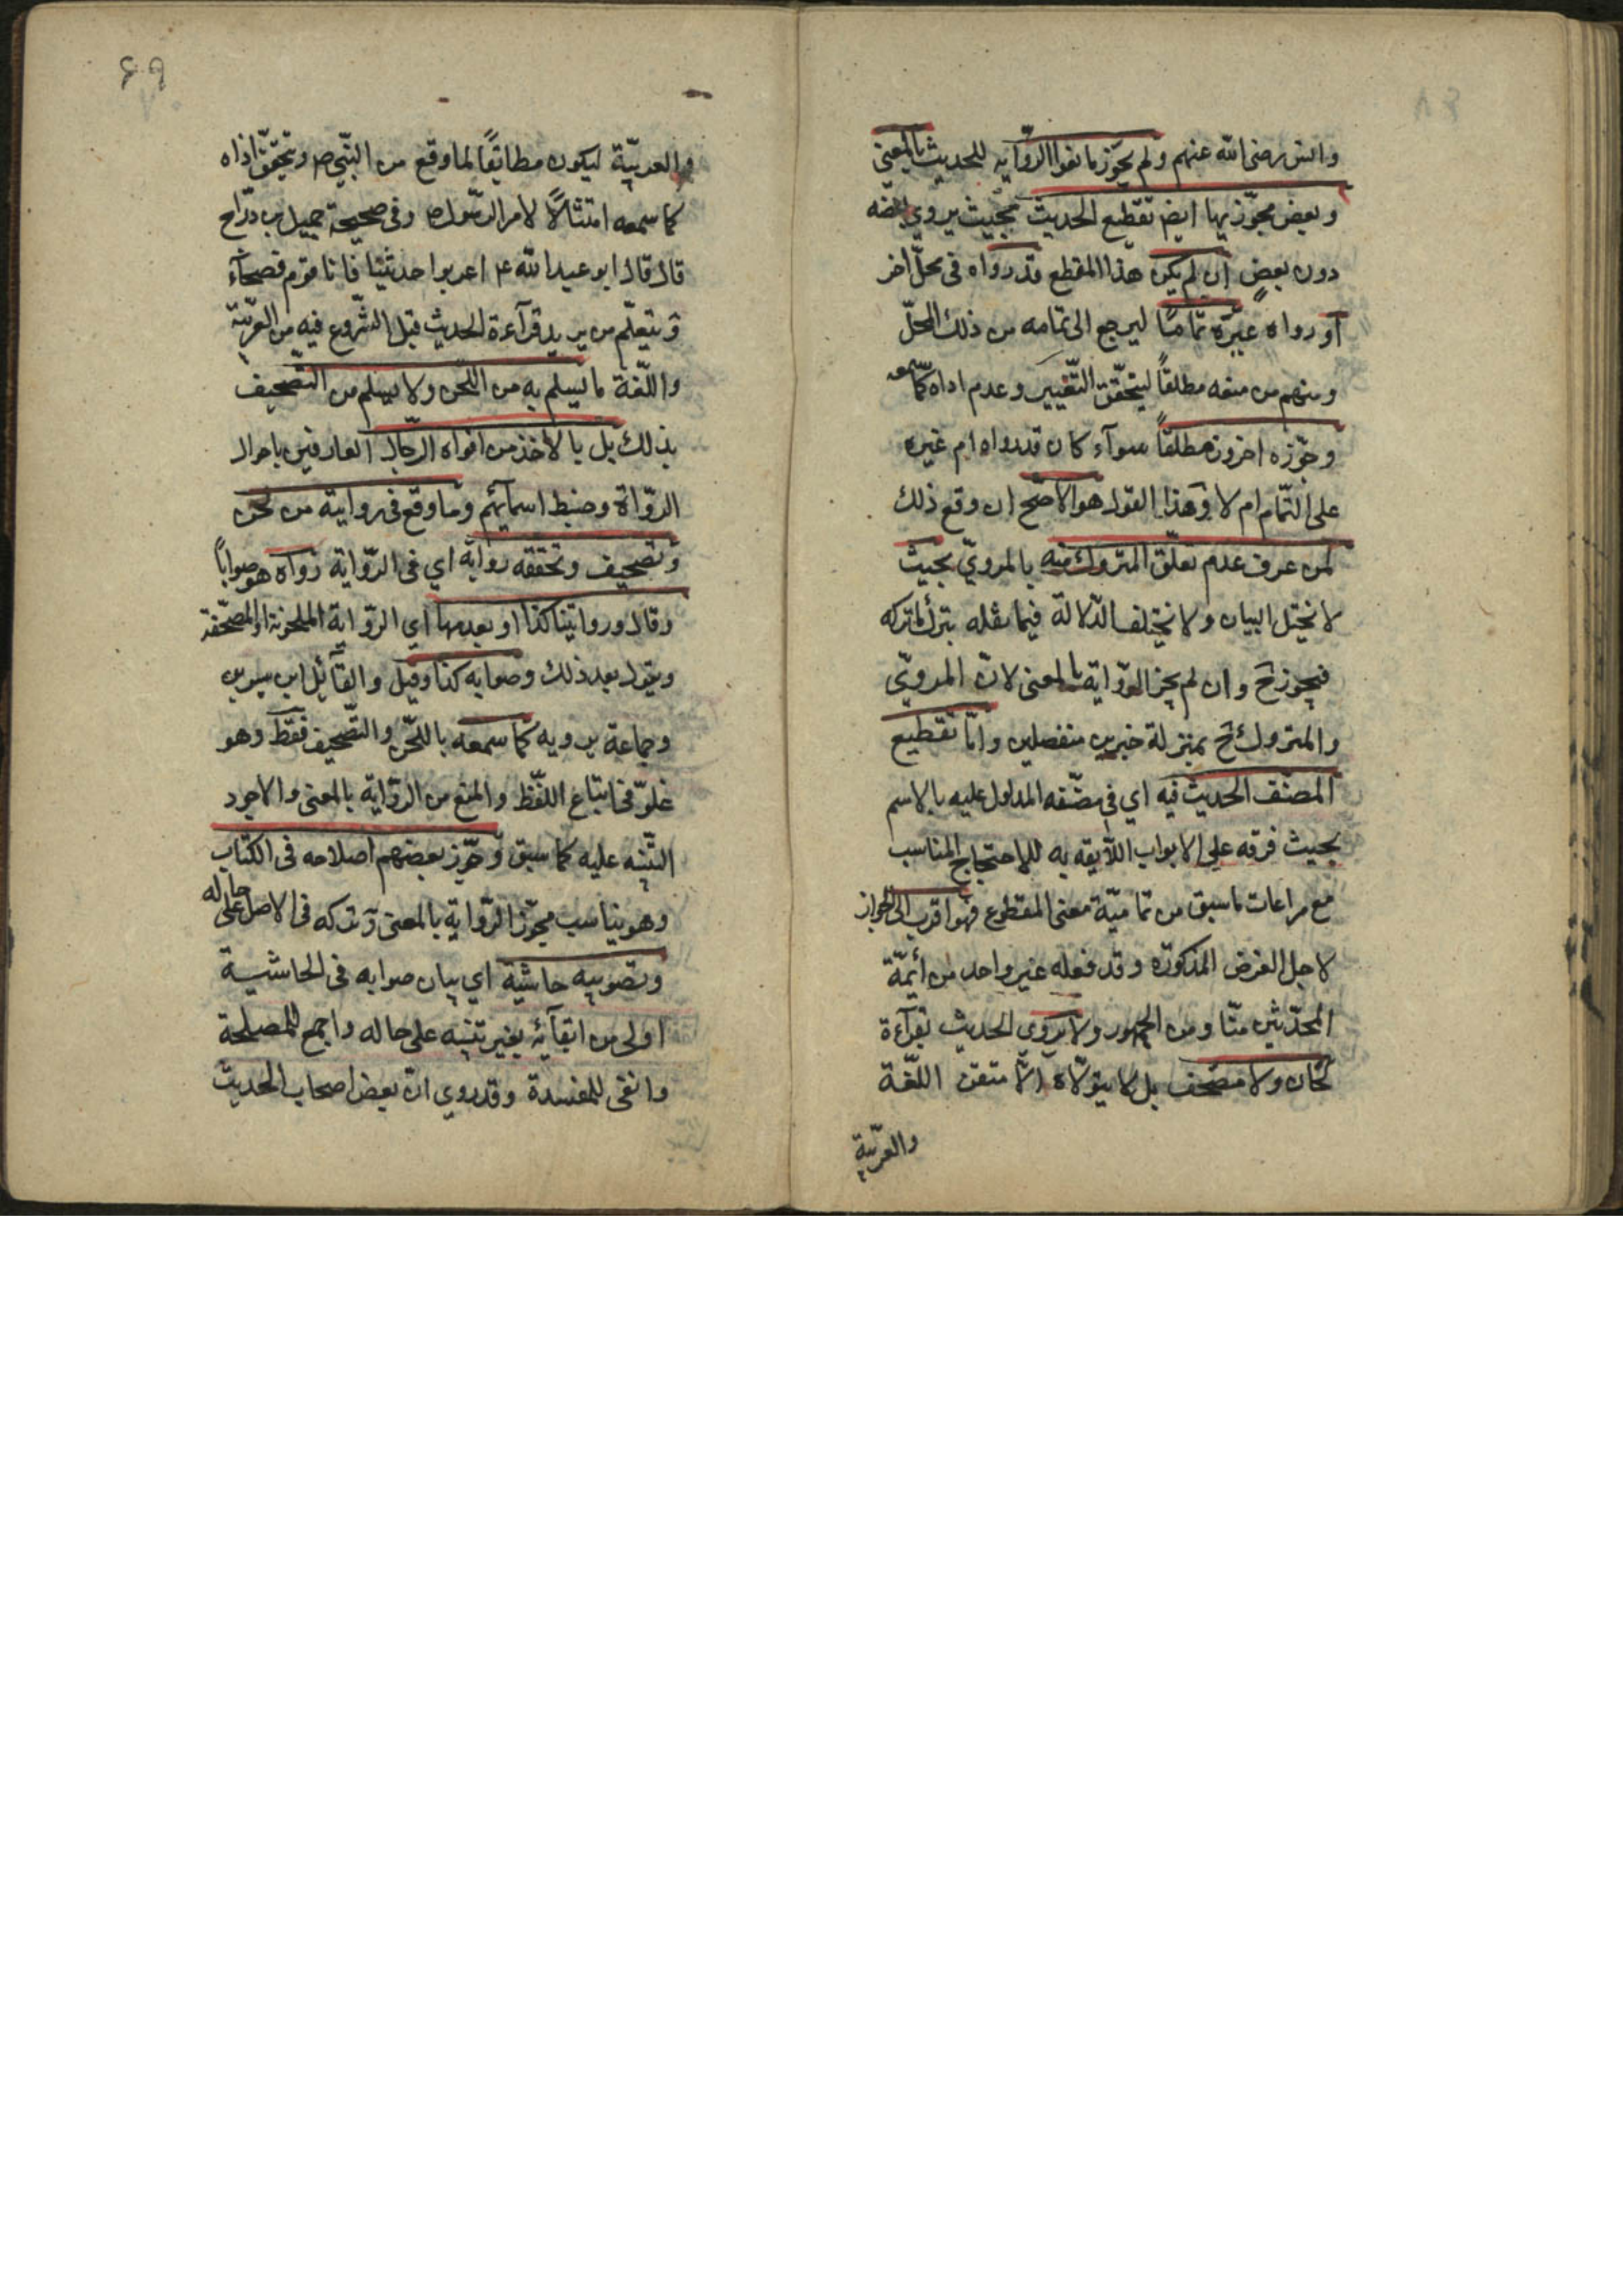 وانس رضى الله عنهم ولم يجوّز مانعوا الرّوايه للحديث بالمعنى
وبعض مجوّزيها ايض تقطيع الحديث بحيث يروي بعضه
دون بعض ان لم يكن هذا المقطع قد رواه فى محلّ اخر
او رواه غيره تمامًا ليرجع الى تمامه من ذلك المحلّ
ومنهم من منعه مطلقاً ليتحقّق التّغيير وعدم اداه كما سمعه
وجوّزه اخرون مطلقاً سوآء كان قد رواه ام غيره
على التّمام ام لا وهذا القول هو الاصحّ ان وقع ذلك
لمن عرف عدم تعلّق المتروك منه بالمرويّ بحيث
لا نختل البيان ولا نختلف الدّلالة فيما نقله بترك ما تركه
فيجوز ح وان لم يجز الرّواية بالمعنى لانّ المرويّ
والمتروك ح بمنزلة خبرين منفصلين وامّا تقطيع
المصنّف الحديث فيه اي فى مصنّفه المدلول عليه بالاسم
بحيث فرقه على الابواب اللّايقه به للاحتجاج المناسب
مع مراعات ما سبق من تماميّة معنى المقطوع فهو اقرب الى الجواز
لاجل الغرض المذكور وقد فعله غير واحد من أئمّة
المحدّثين منّا ومن الجمهور ولا يروي الحديث بقرآءة
لحّان ولا مصحّف بل لا يتولّاه الّا متقن اللّغة
والعربّية
۶۹
والعربيّة ليكون مطابقاً لما وقع من النّبي ص ويتحقّق اداه
كما سمعه امتثالاً لامر الرّسول ص وفى صحيحة جميل بن درّاج
قال قال ابو عبد الله ع اعربوا حديثنا فانا قوم فصحآء
ويتعلّم من يريد قرآءة الحديث قبل الشّروع فيه من العربيّة
واللّغة ما يسلم به من اللّحن ولا يسلم من التّصحيف
بذلك بل بالاخذ من افواه الرّجال العارفين باحوال
الرّواة وضبط اسمآئهم وما وقع فى روايته من لحن
وتصحيف وتحققه رواية اي فى الرّواية رواه هو صواباً
وقال وروايتنا كذا او بعدمها اي الرّواية الملحونة او المصحّفة
ويقول بعد ذلك وصوابه كذا وقيل والقآئل ابن سيرين
وجماعة يرويه كما سمعه باللّحن والتّصحيف فقط وهو
غلوّ فى اتباع اللّفظ والمنع من الرّواية بالمعنى والاجود
التّنبه عليه كما سبق وجوّز بعضهم اصلاحه فى الكتاب
وهو يناسب مجوّز الرّواية بالمعنى وتركه فى الاصل على حاله
وتصويبه حاشية اي بيان صوابه فى الحاشية
اولى من ابقآئه بغير تنبه على حاله واجمع للمصلحة
وانفى للمفسدة وقد روي انّ بعض اصحاب الحديث